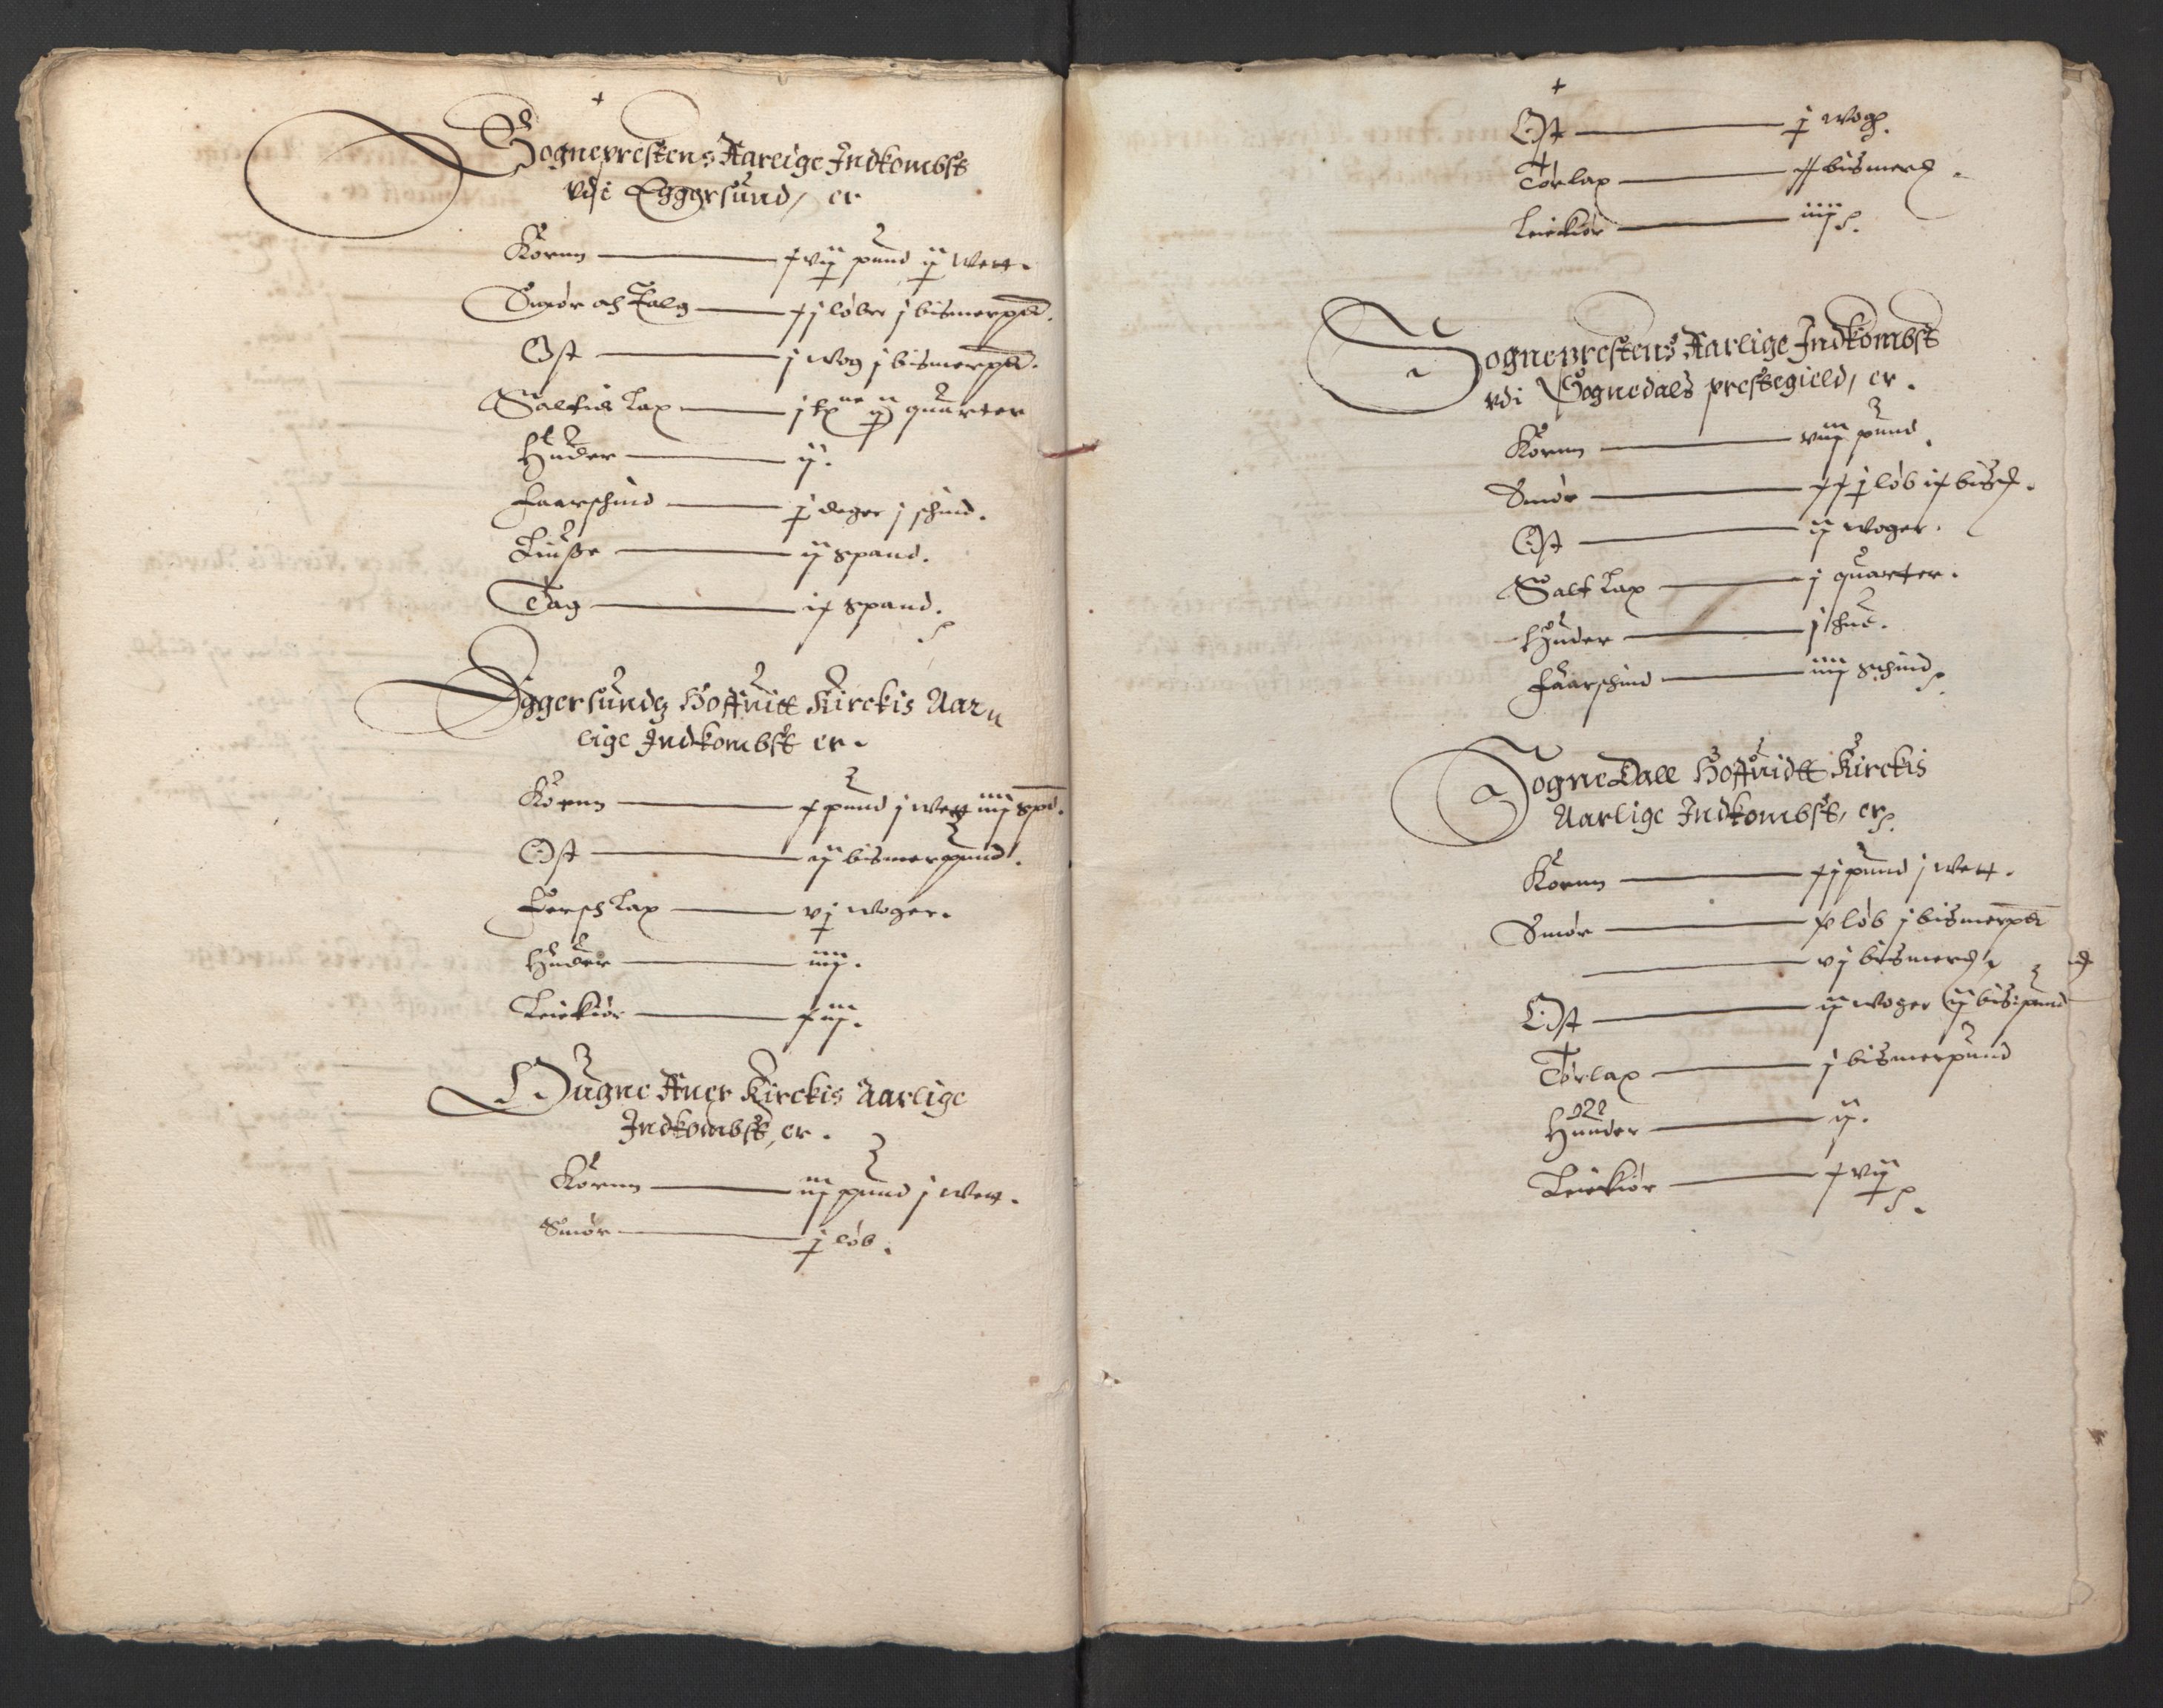 Sogneprestens Aarlige Indkombst
vdi Eggersund, er
Kornn xvij pund ij Wett.
Smør och Talg xj løber j bismerpd.
Ost j Wog j bismerpd.
Saltid Lax j tne ij quarter
Huder ij.
Faarschind j deger j schind.
Liuße ij spand.
Tag ix spand.
Eggersundz Hoffuitt Kirckis Aar
lige Indkombst er.
Kornn x pund j Wett iiij spd.
Ost ij bismerpund.
Fersch Lax vj woger.
Huder iiij.
Leiekiør xiij.
Ougne Aner Kirckis Aarlige
Indkombst, er.
Kornn iij pund j Wett.
Smør j løb.
Ost j wog.
Tørlax bismer
Leiekiør iiij.
Sogneprestens Aarlige Indkombst
vdi Sognedals prestegield, er.
Kornn viij pund.
Smør xxj løb ix bis
Ost ij woger.
Salt Lax j quarter.
Huder j hud.
Faarschind iiij schind.
SogneDall Hoffuidtt Kirckis
Aarlige Indkombst, er.
Kornn xj pund j Wett.
Smør løb j bismerpd
vj bismer
Ost ij woger ij bis: pund
Tørlax j bismerpund
Huuder ij.
Leiekiør xvij